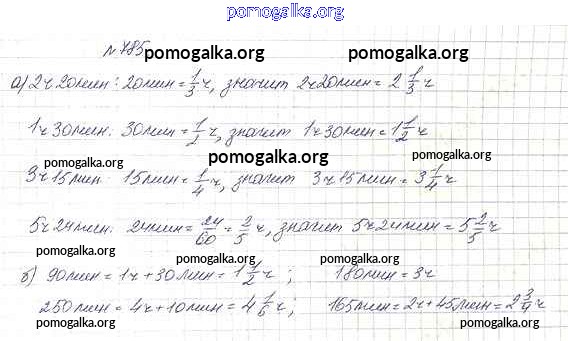 pomogalka.org
№785
pomogalka.org pomogalka.org
а) 2ч 20мин: 20мин = 1/3 ч, значит 2ч 20мин = 2 1/3 ч
pomogalka.org pomogalka.org
1ч 30мин. 30мин = 1/2 ч, значит 1ч 30мин = 1 1/2 ч
pomogalka.org pomogalka.org
3ч 15мин 15мин = 1/4 ч, значит 3ч 15мин = 3 1/4 ч
pomogalka.org pomogalka.org
5ч 24мин. 24мин = 24/60 = 2/5 ч, значит 5ч 24мин = 5 2/5 ч
pomogalka.org pomogalka.org
б) 90мин = 1ч + 30мин = 1 1/2 ч; 180мин = 3ч
pomogalka.org pomogalka.org
250мин = 4ч + 10мин = 4 1/6 ч; 165мин = 2ч + 45мин = 2 3/4 ч
pomogalka.org pomogalka.org pomogalka.org